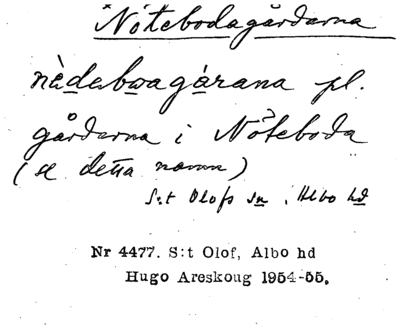 Nötebodagårdarna
nèdebwagárana pl.
gårdarna i Nöteboda
(se detta namn)
S:t Olofs sn, Albo hd
Nr 4477. S:t Olof, Albo hd
Hugo Areskoug 1954-55.